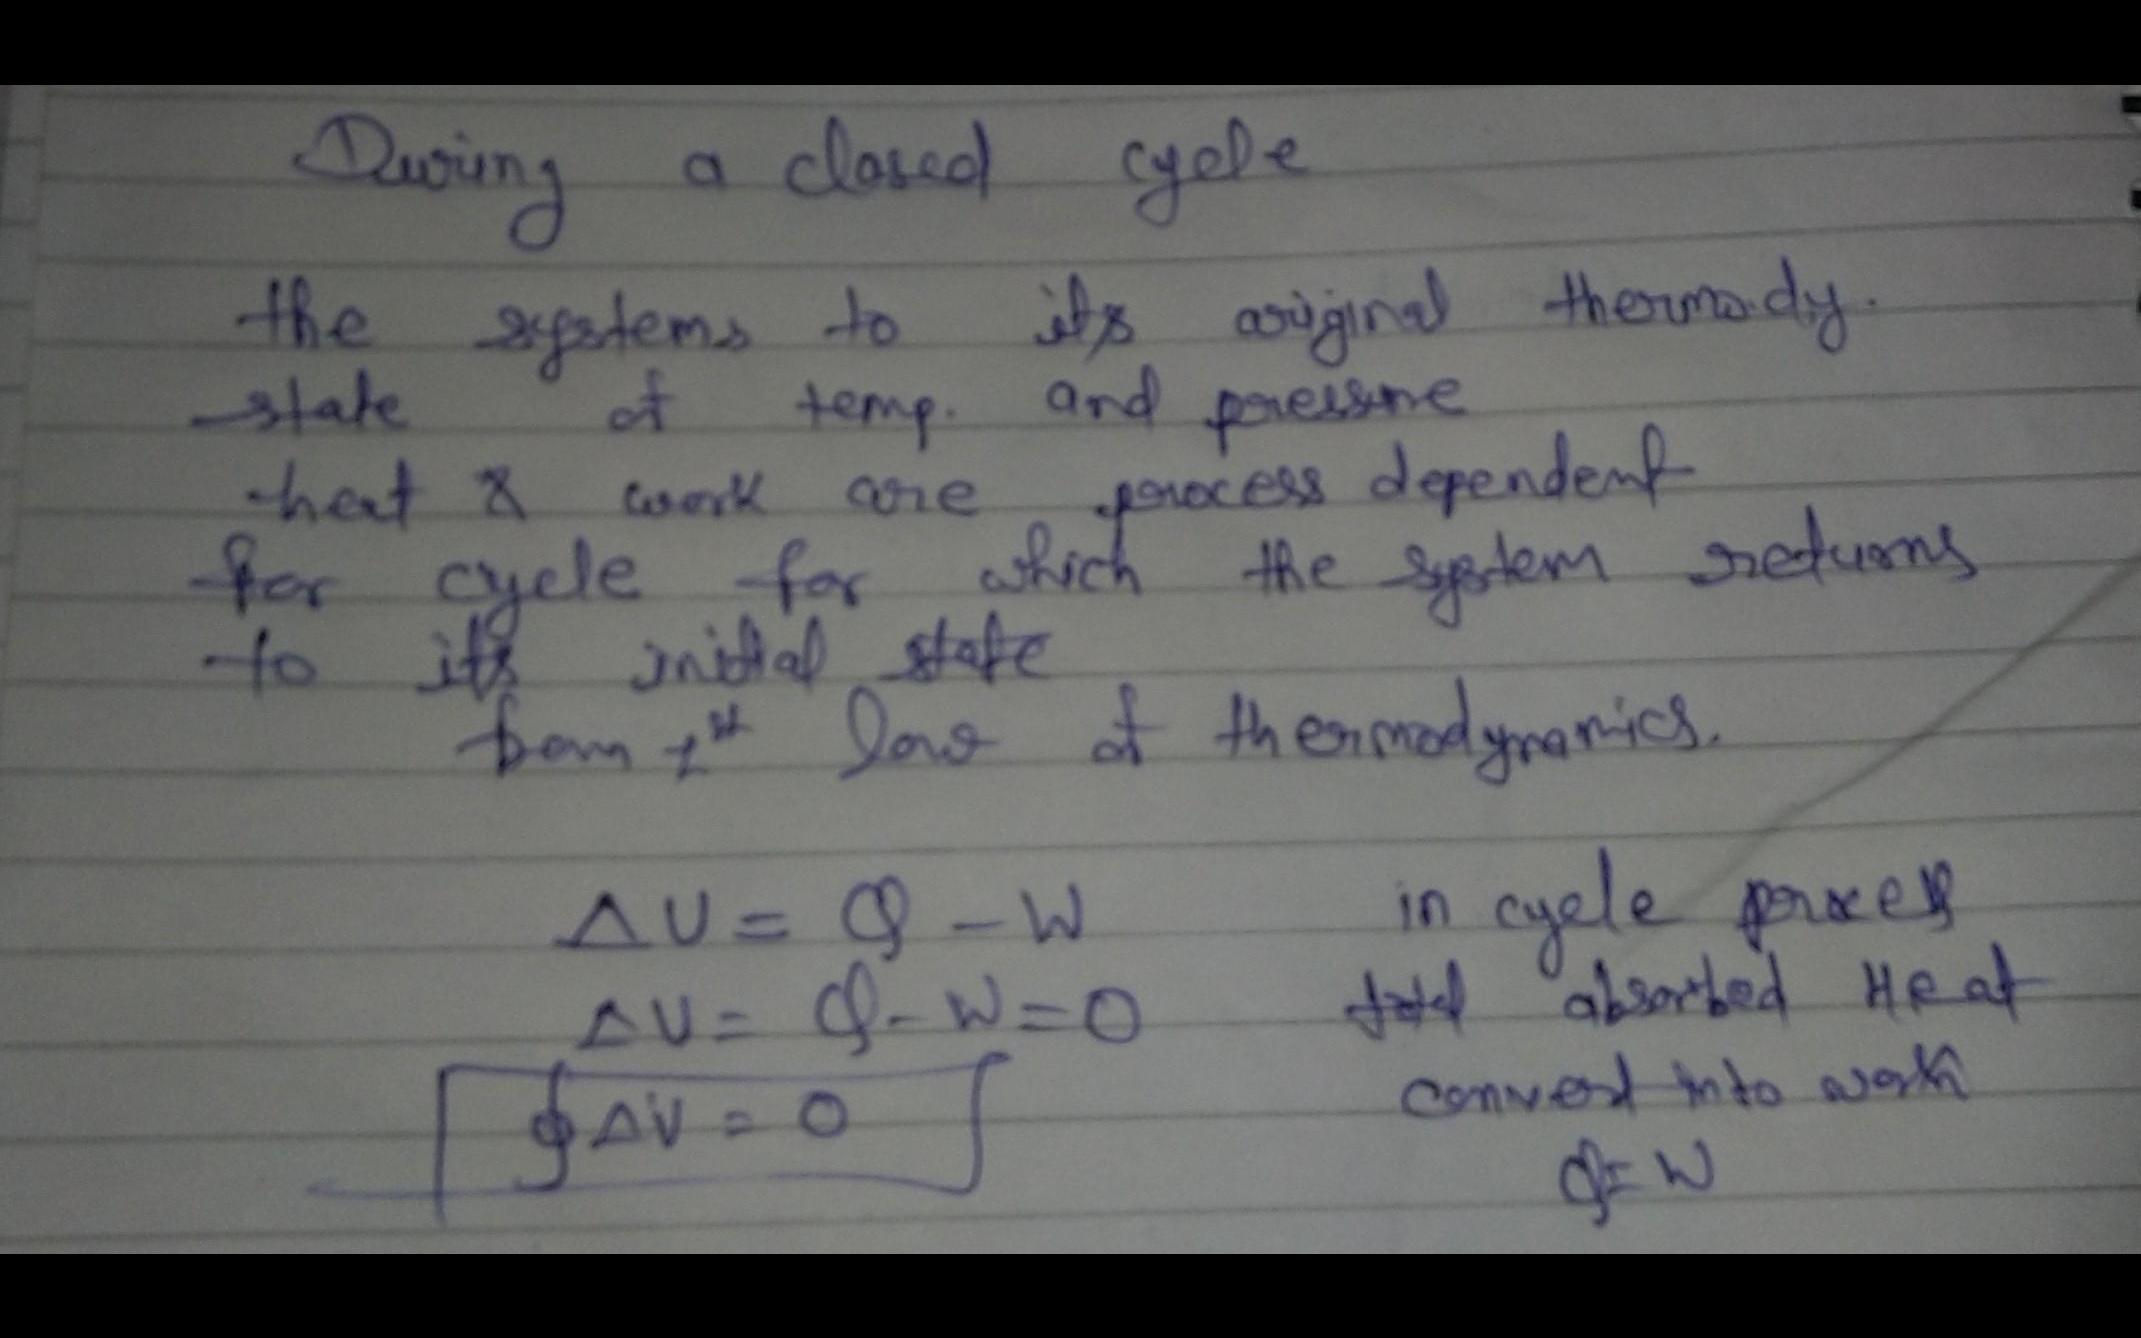 During a closed cycle
the systems to its original thermody.
state of temp. and pressure
heat & work are process dependent
for cycle for which the system returns
to its initial state
from 1st law of thermodynamics.
ΔU = Q - W
ΔU = Q - W = 0
∮ ΔU = 0
in cycle process
total absorbed Heat
convert into work
Q = W